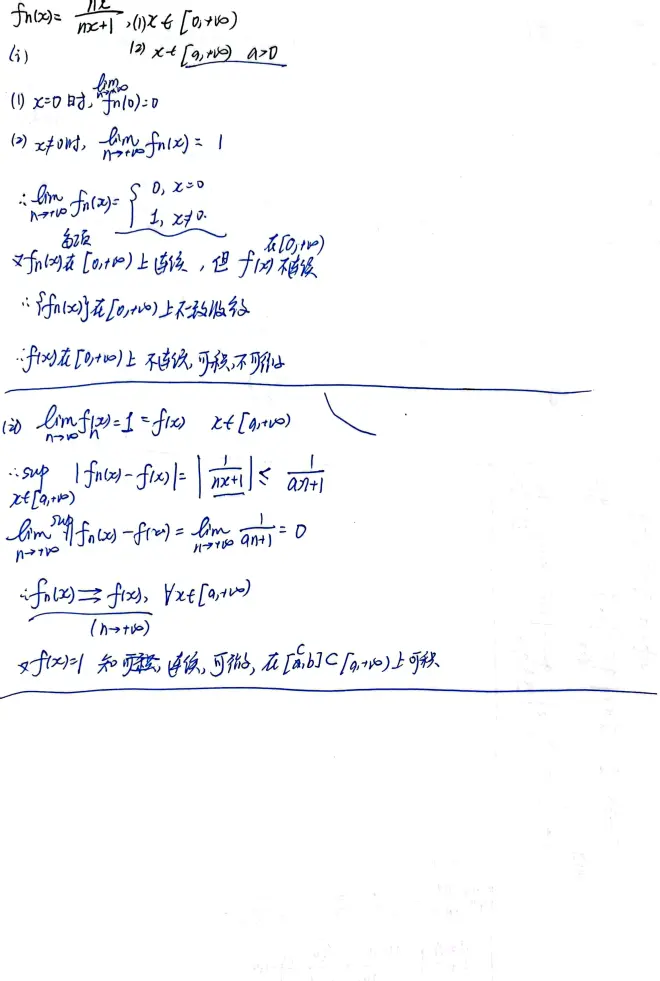 fn(x)= nx/(nx+1), (1) x∈[0,+∞)
(i) (2) x∈[a,+∞) a>0
(1) x=0时, lim n→+∞ fn(0)=0
(2) x≠0时, lim n→+∞ fn(x)= 1
∴ lim n→+∞ fn(x)= { 0, x=0
1, x≠0.
又fn(x)各项在[0,+∞)上连续, 但 f(x)在[0,+∞)不连续
∴{fn(x)}在[0,+∞)上不一致收敛
∴f(x)在[0,+∞)上 不连续,可积,不可微
(ii) lim n→∞ fn(x)=1=f(x) x∈[a,+∞)
∴sup x∈[a,+∞) |fn(x)-f(x)|=|1/(nx+1)|≤ 1/(an+1)
lim n→+∞ sup|fn(x)-f(x)|= lim n→+∞ 1/(an+1) = 0
∴fn(x)⇉f(x), ∀x∈[a,+∞)
(n→+∞)
又f(x)=1 知 连续,可微,在[c,b]⊂[a,+∞)上可积